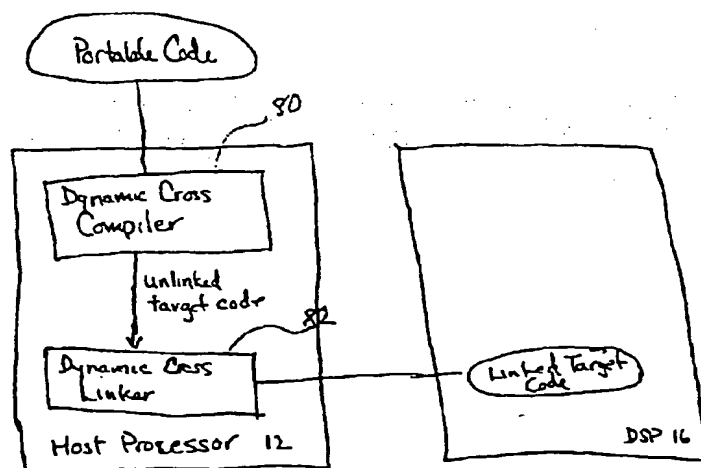 Portable Code
80
Dynamic Cross
Compiler
unlinked
target code
82
Dynamic Cross
Linker
Linked Target
Code
Host Processor 12
DSP 16